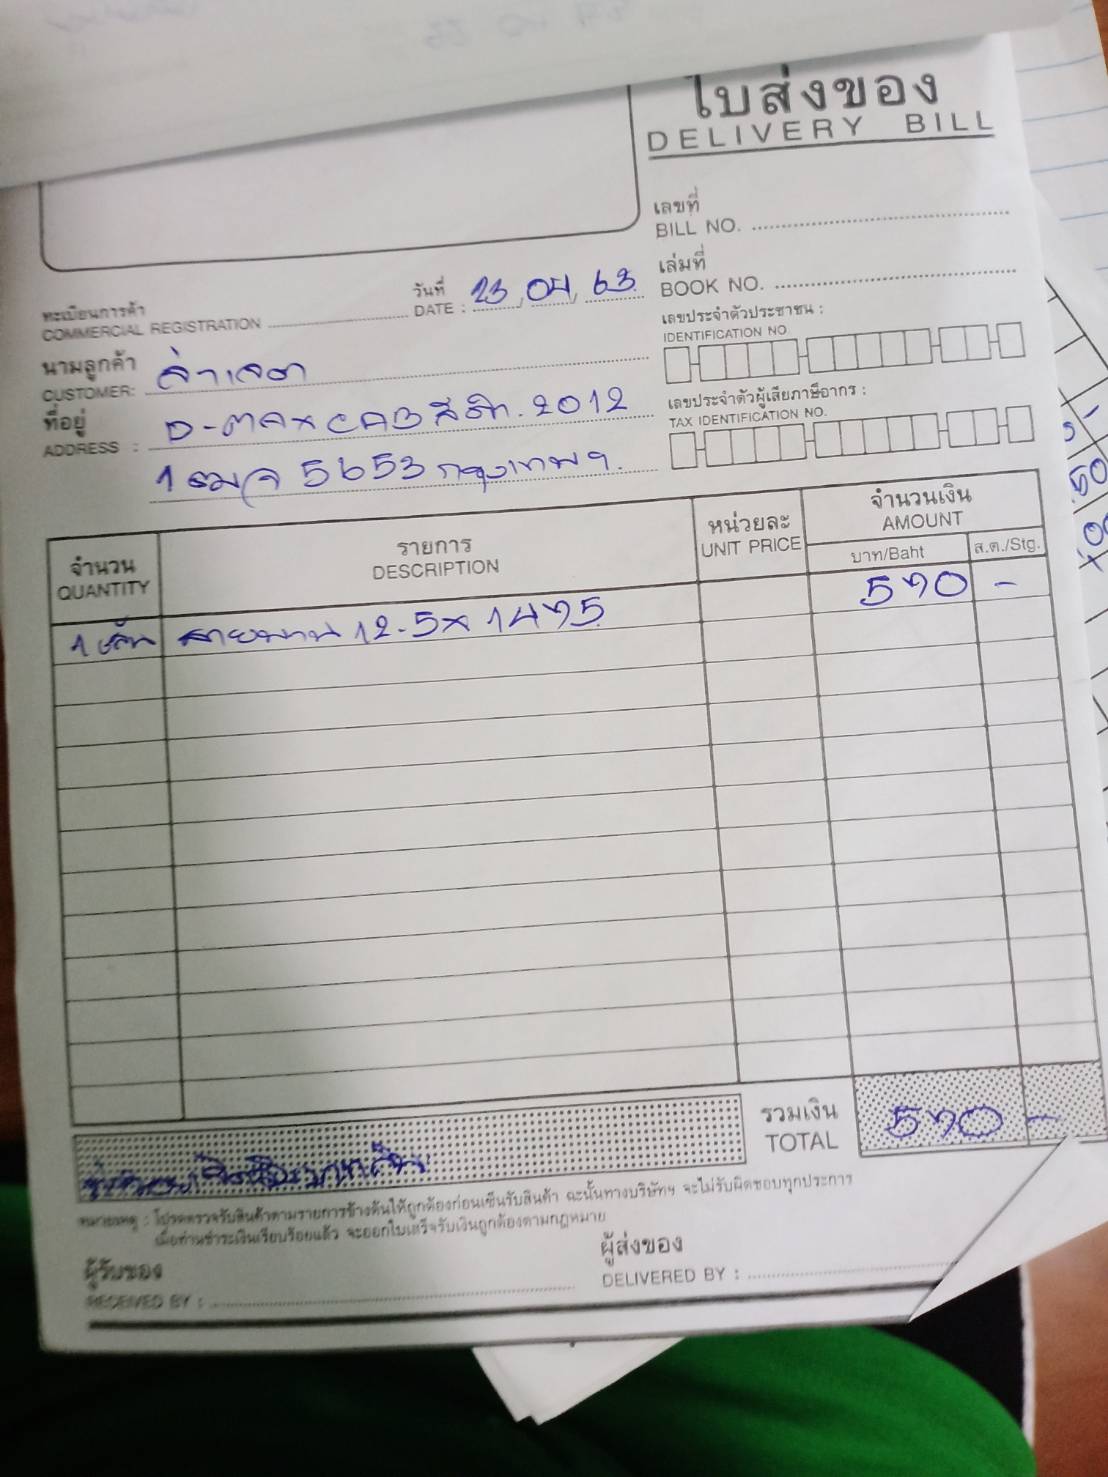 ใบส่งของ
DELIVERY BILL
เลขที่
BILL NO.
เล่มที่
BOOK NO.
ทะเบียนการค้า
COMMERCIAL REGISTRATION
วันที่
DATE : 23, 04, 63
เลขประจำตัวประชาชน :
IDENTIFICATION NO.
นามลูกค้า
CUSTOMER:
ที่อยู่
ADDRESS : D-max 2012
5653 กรุงเทพฯ.
เลขประจำตัวผู้เสียภาษีอากร :
TAX IDENTIFICATION NO.
จำนวน
QUANTITY
รายการ
DESCRIPTION
หน่วยละ
UNIT PRICE
จำนวนเงิน
AMOUNT
บาท/Baht
ส.ต./Stg.
1 เส้น สายพาน 12.5x1475 570 -
รวมเงิน
TOTAL
570 -
หมายเหตุ : โปรดตรวจรับสินค้าตามรายการข้างต้นให้ถูกต้องก่อนเซ็นรับสินค้า ฉะนั้นทางบริษัทฯ จะไม่รับผิดชอบทุกประการ
เมื่อท่านชำระเงินเรียบร้อยแล้ว จะออกใบเสร็จรับเงินถูกต้องตามกฎหมาย
ผู้รับของ
RECEIVED BY :
ผู้ส่งของ
DELIVERED BY :